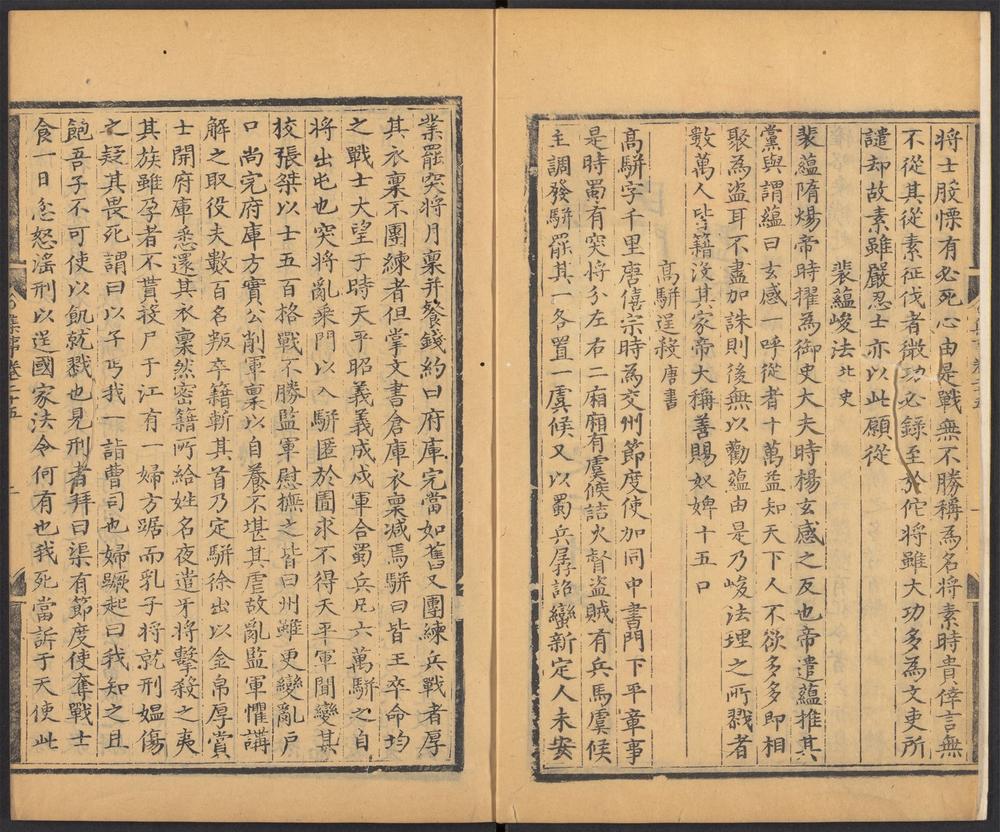 將士股慄有必死心由是戰無不勝稱為名將素時貴倖言無
不從其從素征伐者微功必錄至於佗將雖大功多為文吏所
譴却故素雖嚴忍士亦以此願從
裴蘊峻法北史
裴蘊隋煬帝時擢為御史大夫時楊玄感之反也帝遣蘊推其
黨與謂蘊曰玄感一呼從者十萬益知天下人不欲多多即相
聚為盜耳不盡加誅則後無以勸蘊由是乃峻法理之所戮者
數萬人皆籍沒其家帝大稱善賜奴婢十五口
高駢逞殺唐書
高駢字千里唐僖宗時為交州節度使加同中書門下平章事
是時蜀有突將分左右二廂廂有虞候詰火督盜賊有兵馬虞候
主調發駢罷其一各置一虞候又以蜀兵孱詔蠻新定人未安
業罷突將月稟并餐錢約曰府庫完當如舊又團練兵戰者厚
其衣稟不團練者但掌文書倉庫衣稟减焉駢曰皆王卒命均
之戰士大望于時天平昭義義成戍軍合蜀兵凡六萬駢之自
將出屯也突將亂乘門以入駢匿於圊求不得天平軍聞變其
校張桀以士五百格戰不勝監軍慰撫之皆曰州雖更變亂戶
口尚完府庫方實公削軍稟以自養不堪其虐故亂監軍懼講
解之取役夫數百名叛卒籍斬其首乃定駢徐出以金帛厚賞
士開府庫悉還其衣稟然密籍所給姓名夜遣牙將擊殺之夷
其族雖孕者不貰投尸于江有一婦方踞而乳子將就刑媼傷
之疑其畏死謂曰以子丐我一詣曹司也婦蹶起曰我知之且
飽吾子不可使以飢就戮也見刑者拜曰渠有節度使奪戰士
食一日忿怒滛刑以逞國家法令何有也我死當訴于天使此